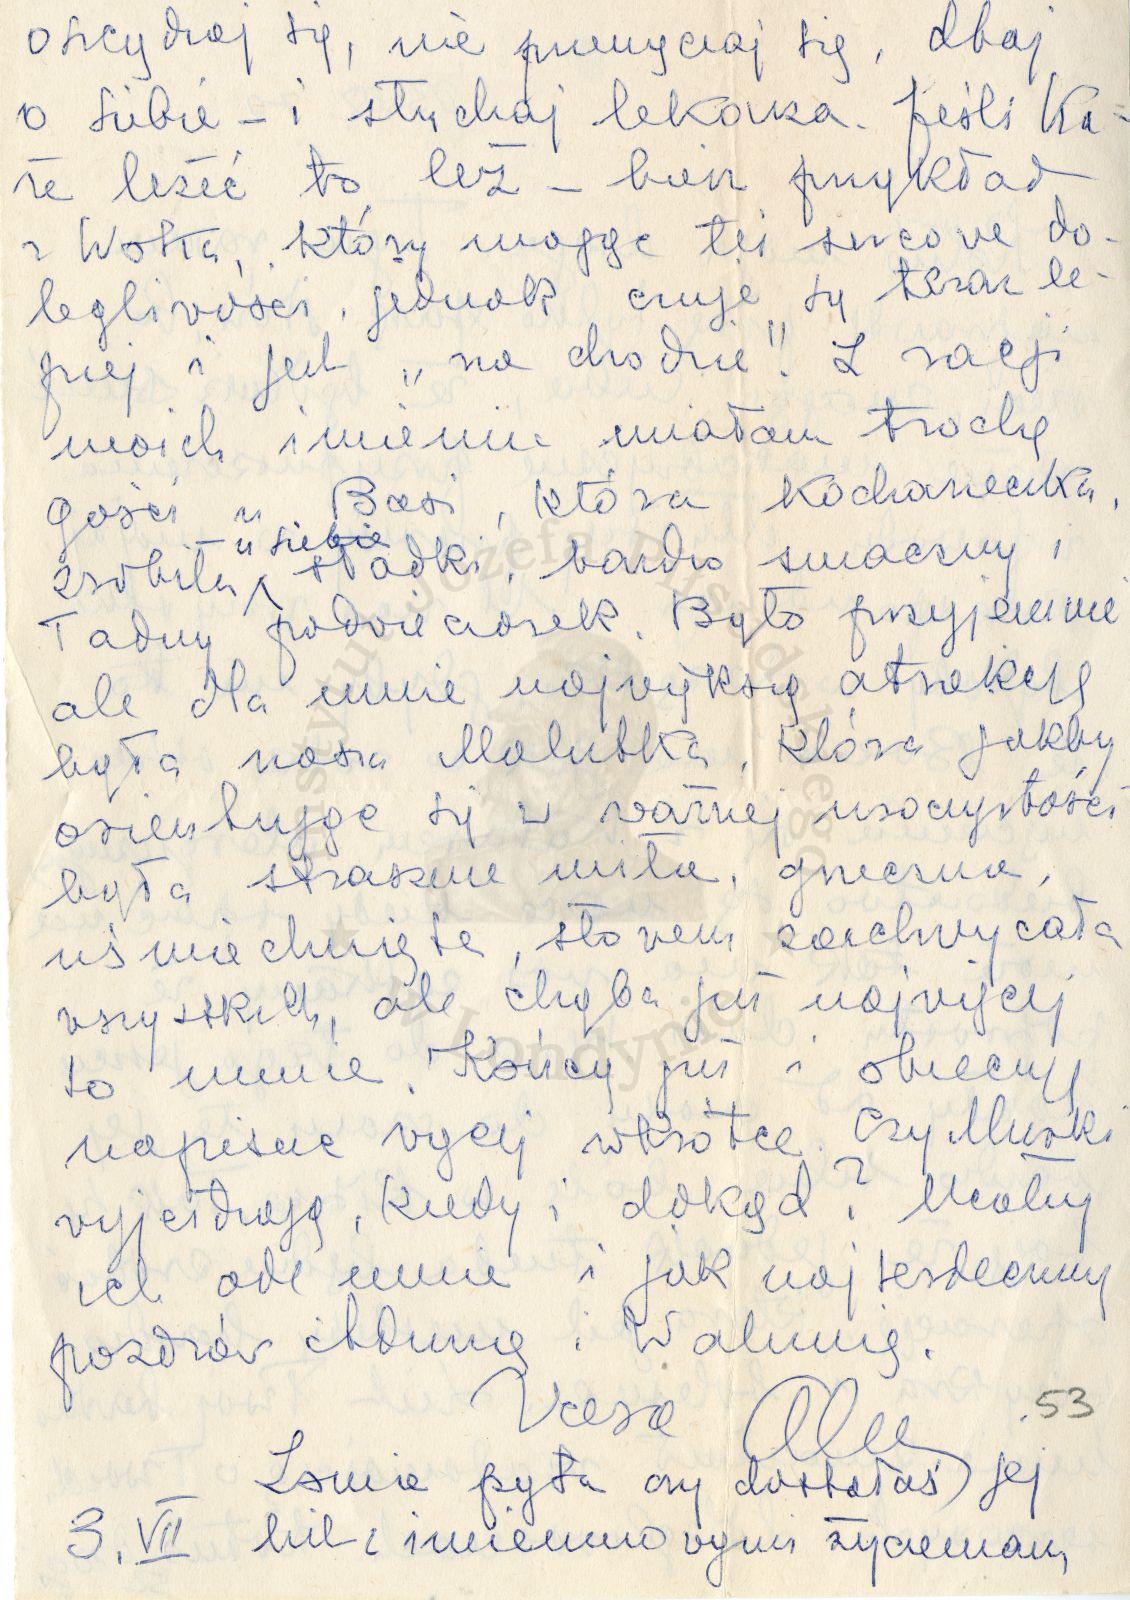 oszczędzaj się, nie przemęczaj się, dbaj
o siebie – i słuchaj lekarza. Jeśli ka-
że leżeć to leż – bierz przykład
z Wołka, który mając też sercowe do-
legliwości, jednak czuje się teraz le-
piej i jest „na chodzie"! Z racji
moich imienin miałam trochę
gości u Basi, która kochaneczka,
u siebie
zrobiła słodki, bardzo smaczny i
ładny podwieczorek. Było przyjemnie
ale dla mnie największą atrakcją
była nasza Malutka, która jakby
orientując się w ważnej uroczystości
była strasznie miła, grzeczna,
uśmiechnięta, słowem zachwycała
wszystkich, ale chyba już najwięcej
to mnie. Kończę już i obiecuję
napisać więcej wkrótce. Czy Murki
wyjeżdżają, kiedy i dokąd? Ucałuj
ich ode mnie i jak najserdeczniej
pozdrów i Walunię.
Wasza
.53
pyta czy dostałaś jej
3. VII list z imieninowymi życzeniami
Instytut Józefa Piłsudskiego
w Londynie